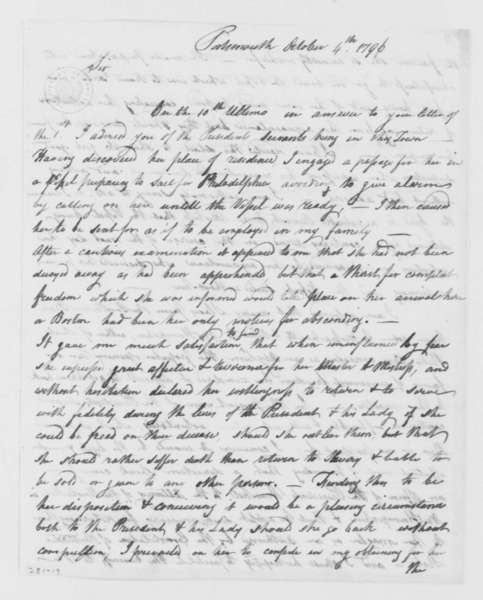 Portsmouth October 4th. 1796
Sir
On the 10th Ultimo in answer to your letter of
the 1st. I advised you of the President servants being in this Town
Having discovered her place of residence I engaged a passage for her in
a Vessel preparing to Sail for Philadelphia avoiding to give alarm
by calling on her untill the Vessel was ready, — I then caused
her to be sent for as if to be employed in my family —
After a cautious examination it appeared to me that she had not been
decoyed away as had been apprehended but that a thirst for compleat
freedom which she was informed would take place on her arrival here
or Boston had been her only motive for absconding. —
It gave me much satisfaction to find that when uninfluenced by fear
she expressed great affection & reverence for her Master & Mistress, and
without hesitation declared her willingness to return & to serve
with fidelity during the lives of the President & his Lady if she
could be freed on their decease, should she outlive them; but that
she should rather suffer death than return to Slavery & liable to
be sold or given to any other person. — Finding this to be
her disposition & conceiving it would be a pleasing circumstance
both to the President & his Lady should she go back without
compulsion I prevailed on her to confide in my obtaining for her
the